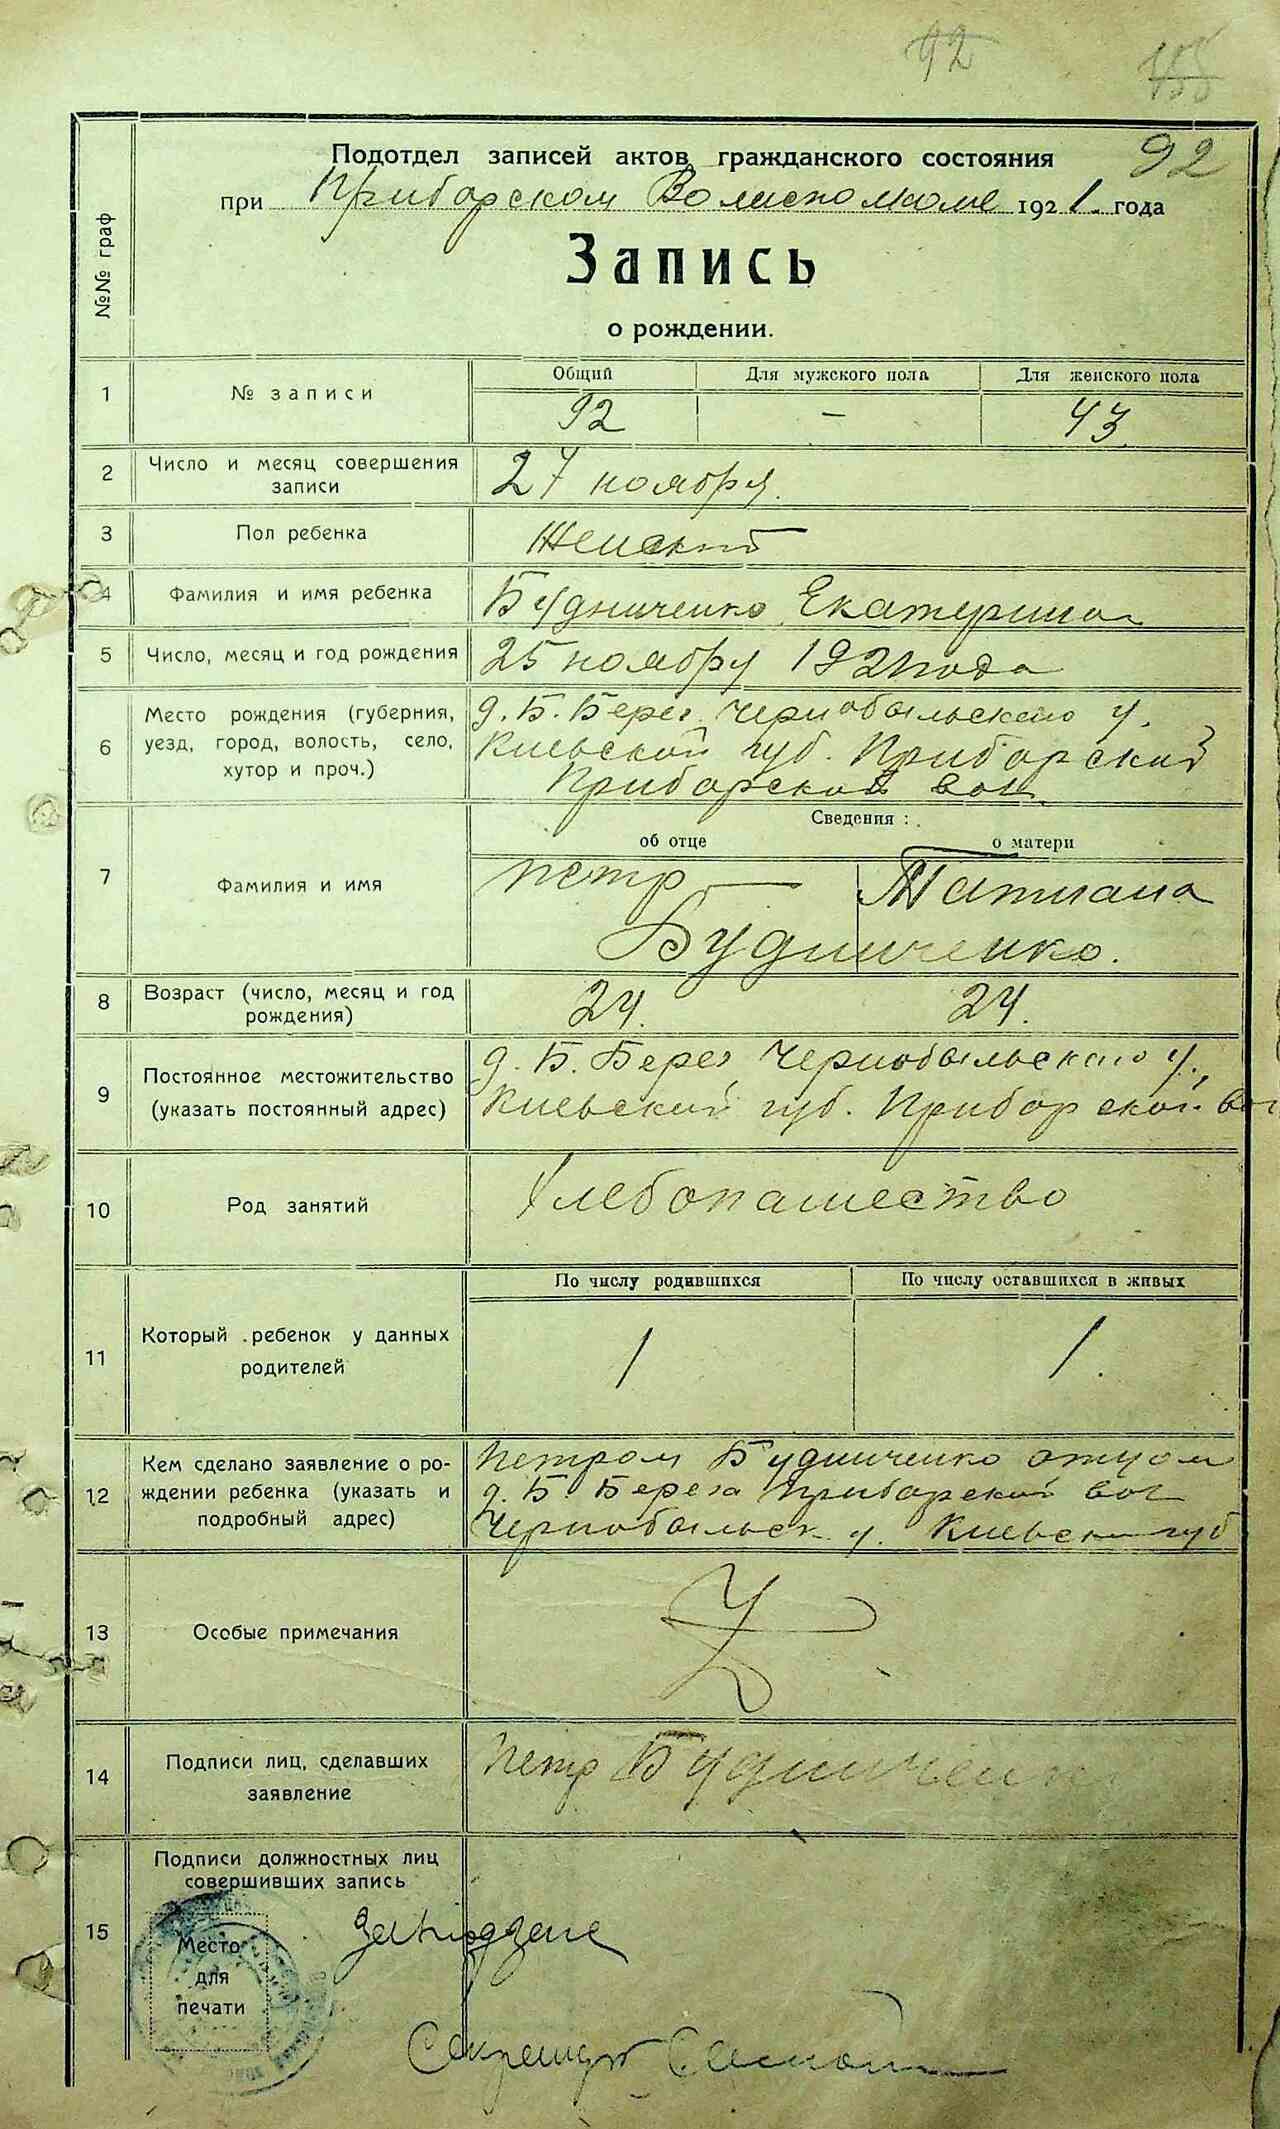 92
92
Подотдел записей актов гражданского состояния
при Приборском Волисполкоме 1921. года
Запись
о рождении.
№№ граф
1 № записи
Общий Для мужского пола Для женского пола
92 – 43
2 Число и месяц совершения записи
27 ноября.
3 Пол ребенка Женский
4 Фамилия и имя ребенка Будниченко Екатерина
5 Число, месяц и год рождения 25 ноябру 1921 года
6 Место рождения (губерния, уезд, город, волость, село, хутор и проч.)
д. Б. Берег Чернобыльского у.
Киевской губ. Приборской
Приборской вол.
Сведения:
об отце о матери
7 Фамилия и имя
Петр — Татиана
Будниченко.
8 Возраст (число, месяц и год рождения)
24. 24.
9 Постоянное местожительство (указать постоянный адрес)
д. Б. Берег Чернобыльского у.,
Киевской губ. Приборской вол
10 Род занятий Хлебопашество
11 Который ребенок у данных родителей
По числу родившихся По числу оставшихся в живых
1 1.
12 Кем сделано заявление о рождении ребенка (указать и подробный адрес)
Петром Будниченко отцом
д. Б. Берега Приборской вол
Чернобыльск у. Киевск губ
13 Особые примечания
14 Подписи лиц, сделавших заявление
Петр Будниченко
15 Подписи должностных лиц совершивших запись
Место
для
печати
Секретарь